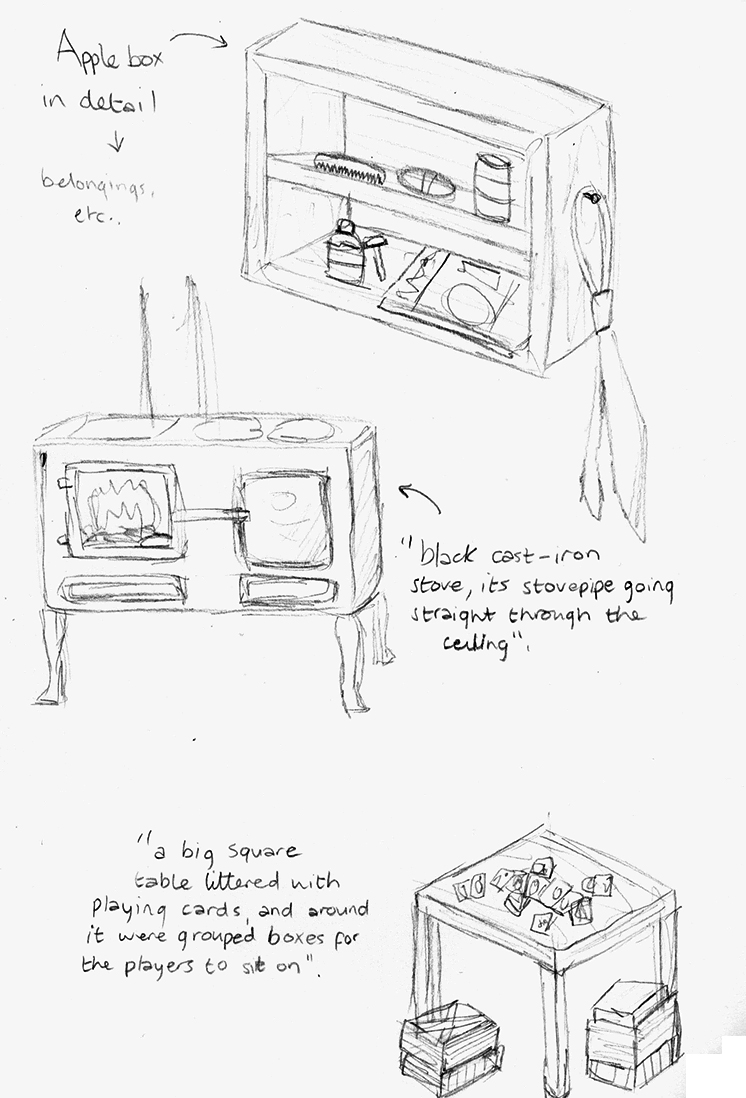 Apple box
in detail
belongings,
etc..
"black cast-iron
stove, its stovepipe going
straight through the
ceiling".
"a big square
table littered with
playing cards, and around
it were grouped boxes for
the players to sit on".